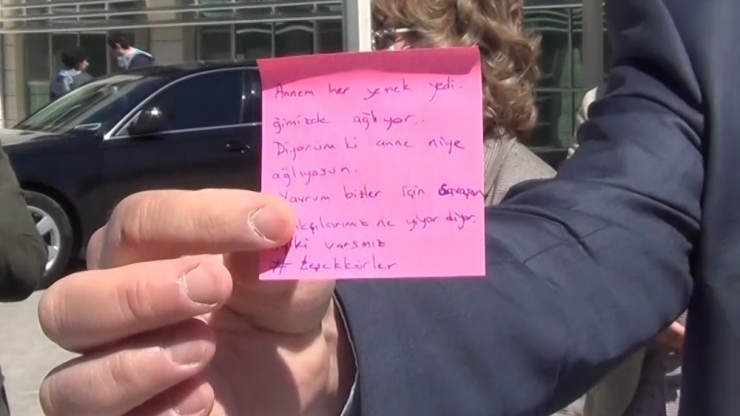 Annem her yemek yedi.
ğimizde ağlıyor..
Diyorum ki anne niye
ağlıyosun.
Yavrum bizler için savaşan
ne yiyor diyor.
varsınız
# teşekkürler